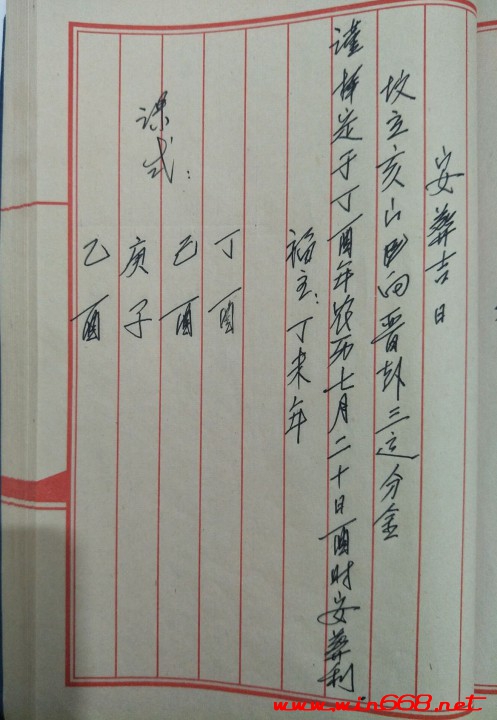 安葬吉日
坟立亥山巳向晋卦三运分金
谨择定于丁酉年农历七月二十日酉时安葬利
福主:丁未年
课式:
丁酉
己酉
庚子
乙酉
www.win668.net